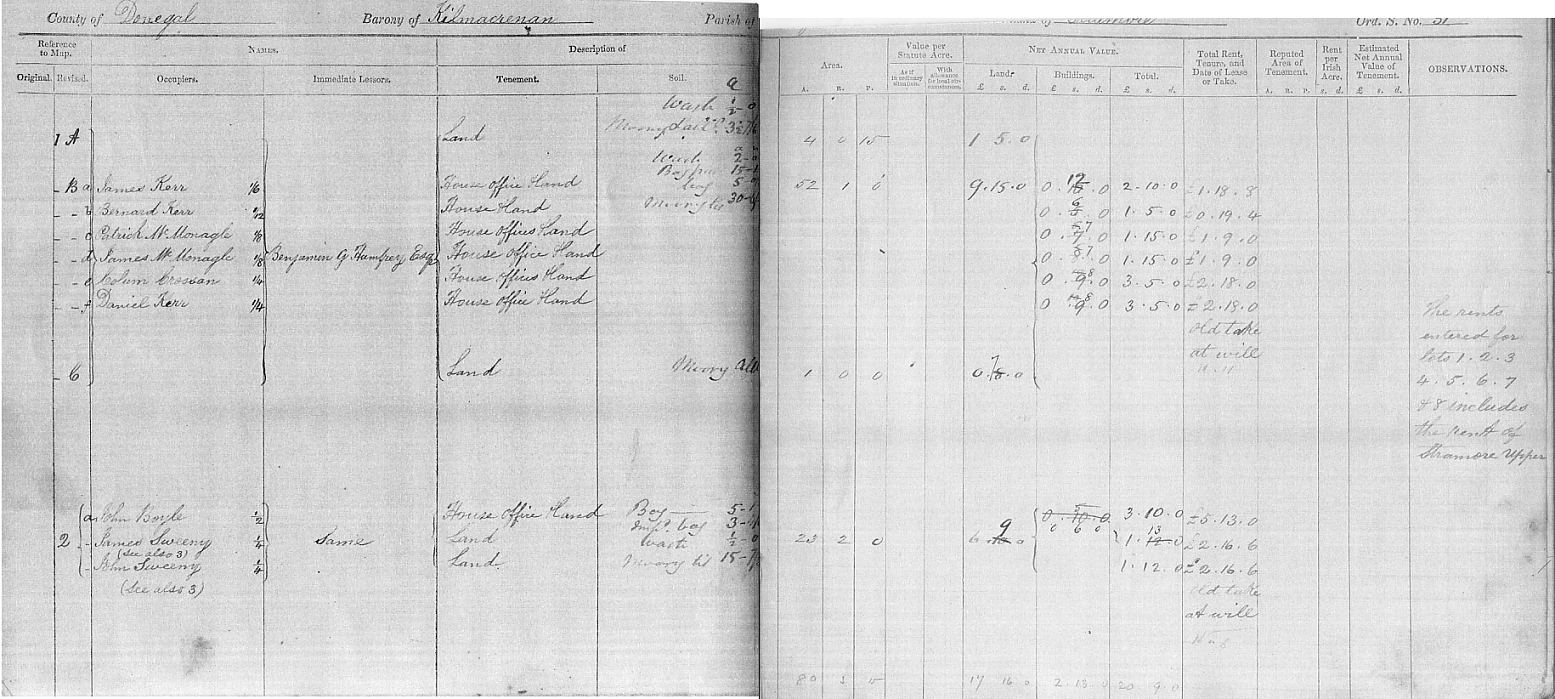 County of Donegal Barony of Kilmacrenan Parish of
Ord. S. No. 51
Reference to Map. NAMES. Description of
Original. Revised. Occupiers. Immediate Lessors. Tenement. Soil.
Area. Value per Statute Acre. NET ANNUAL VALUE. Total Rent, Tenure, and Date of Lease or Take. Reputed Area of Tenement. Rent per Irish Acre. Estimated Net Annual Value of Tenement. OBSERVATIONS.
As if in ordinary situation. With allowance for local circumstances. Land. Buildings. Total.
A. R. P. £ s. d. £ s. d. £ s. d. A. R. P. s. d. £ s. d.
Wash
1 A Land 4 0 15 1 5.0
Wash 2
- B a James Kerr 1/6 House office & land 52 1 0 9.15.0 0 . 12 . 0 2.10.0 £1.18.8
- - b Bernard Kerr 1/12 House & land 0 . 6 . 0 1.5.0 £0.19.4
- - c Patrick McMonagle 1/8 House offices & land 0 . 7 . 0 1.15.0 £1.9.0
- - d James McMonagle 1/8 Benjamin G Humfrey Esqr House office & land 0 . 7 . 0 1.15.0 £1.9.0
- - e Colum Crossan 1/4 House offices & land 0 . 9 . 0 3.5.0 £2.18.0
- - f Daniel Kerr 1/4 House office & land 0 . 9 . 0 3.5.0 £2.18.0
Old take
at will
- C Land Moory 1 0 0 0. 7 .0
The rents
entered for
lots 1.2.3
4.5.6.7
& 8 includes
the rent of
Stramore Upper
a John Boyle 1/2 House office & land Bog 5 0.10.0 3.10.0 £5.13.0
2 - James Sweeny 1/4 Same Land waste 1/2 23 2 0 6. 9 0 0 6 0 1. 13 .0 £2.16.6
(see also 3)
- John Sweeny 1/4 Land 1.12.0 £2.16.6
(see also 3)
Old take
at will
17 16 0 2.13.0 20 9.0